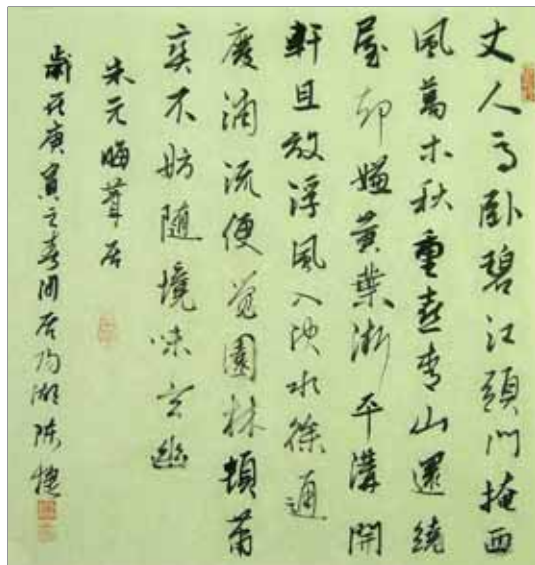 丈人高臥碧江頭門掩西
風萬木秋重喜青山還繞
屋却嫌黃葉漸平溝開
軒且放浮風入決水徐通
廢滴流便覺園林頓蕭
爽不妨隨境味玄幽
朱元晦葺居
歲在庚寅之春閒居湖陳捷